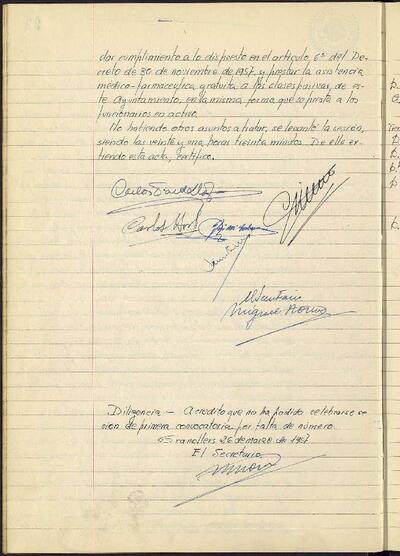 dar cumplimiento a lo dispuesto en el artículo 6º del De-
creto de 30 de noviembre de 1957, y prestar la asistencia
médico-farmacéutica gratuita a las clases pasivas, de es-
te Ayuntamiento, en la misma forma que se presta a los
funcionarios en activo.
No habiendo otros asuntos a tratar, se levantó la sesión,
siendo las veinte y una horas treinta minutos. De ella ex-
tiendo esta acta, certifico.
Carlos
Carlos Font
El Secretario
Miguel
Diligencia — Acredito que no ha podido celebrarse se-
sion de primera convocatoria por falta de número.
Granollers 26 de marzo de 1957.
El Secretario